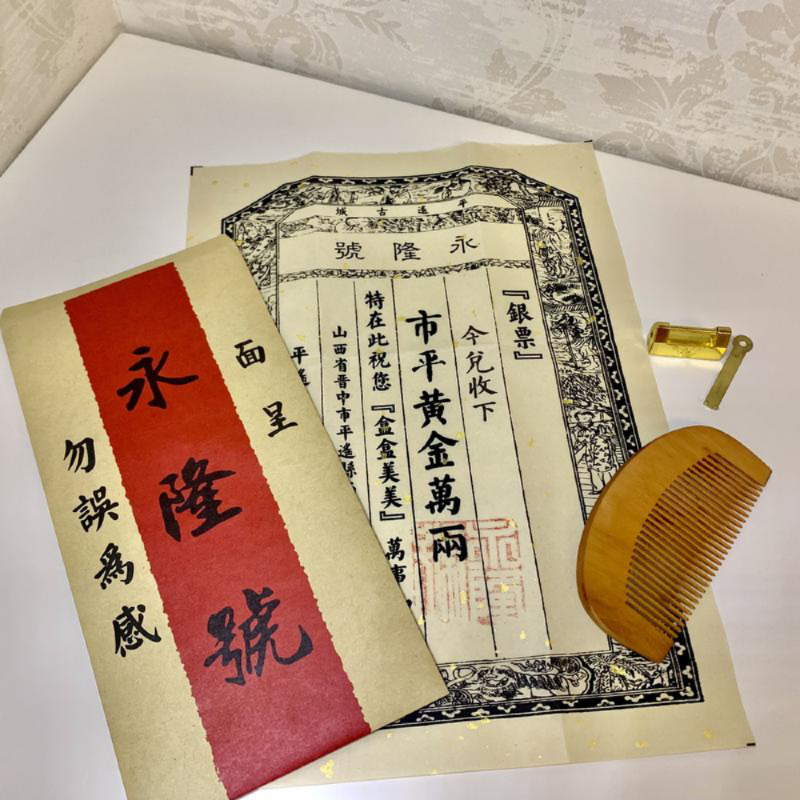 面呈
永隆號
勿誤爲感
平遥古城
永隆號
『銀票』
今兌收下
市平黃金萬兩
特在此祝您『盒盒美美』萬事
山西省晉中市平遥縣
平遥